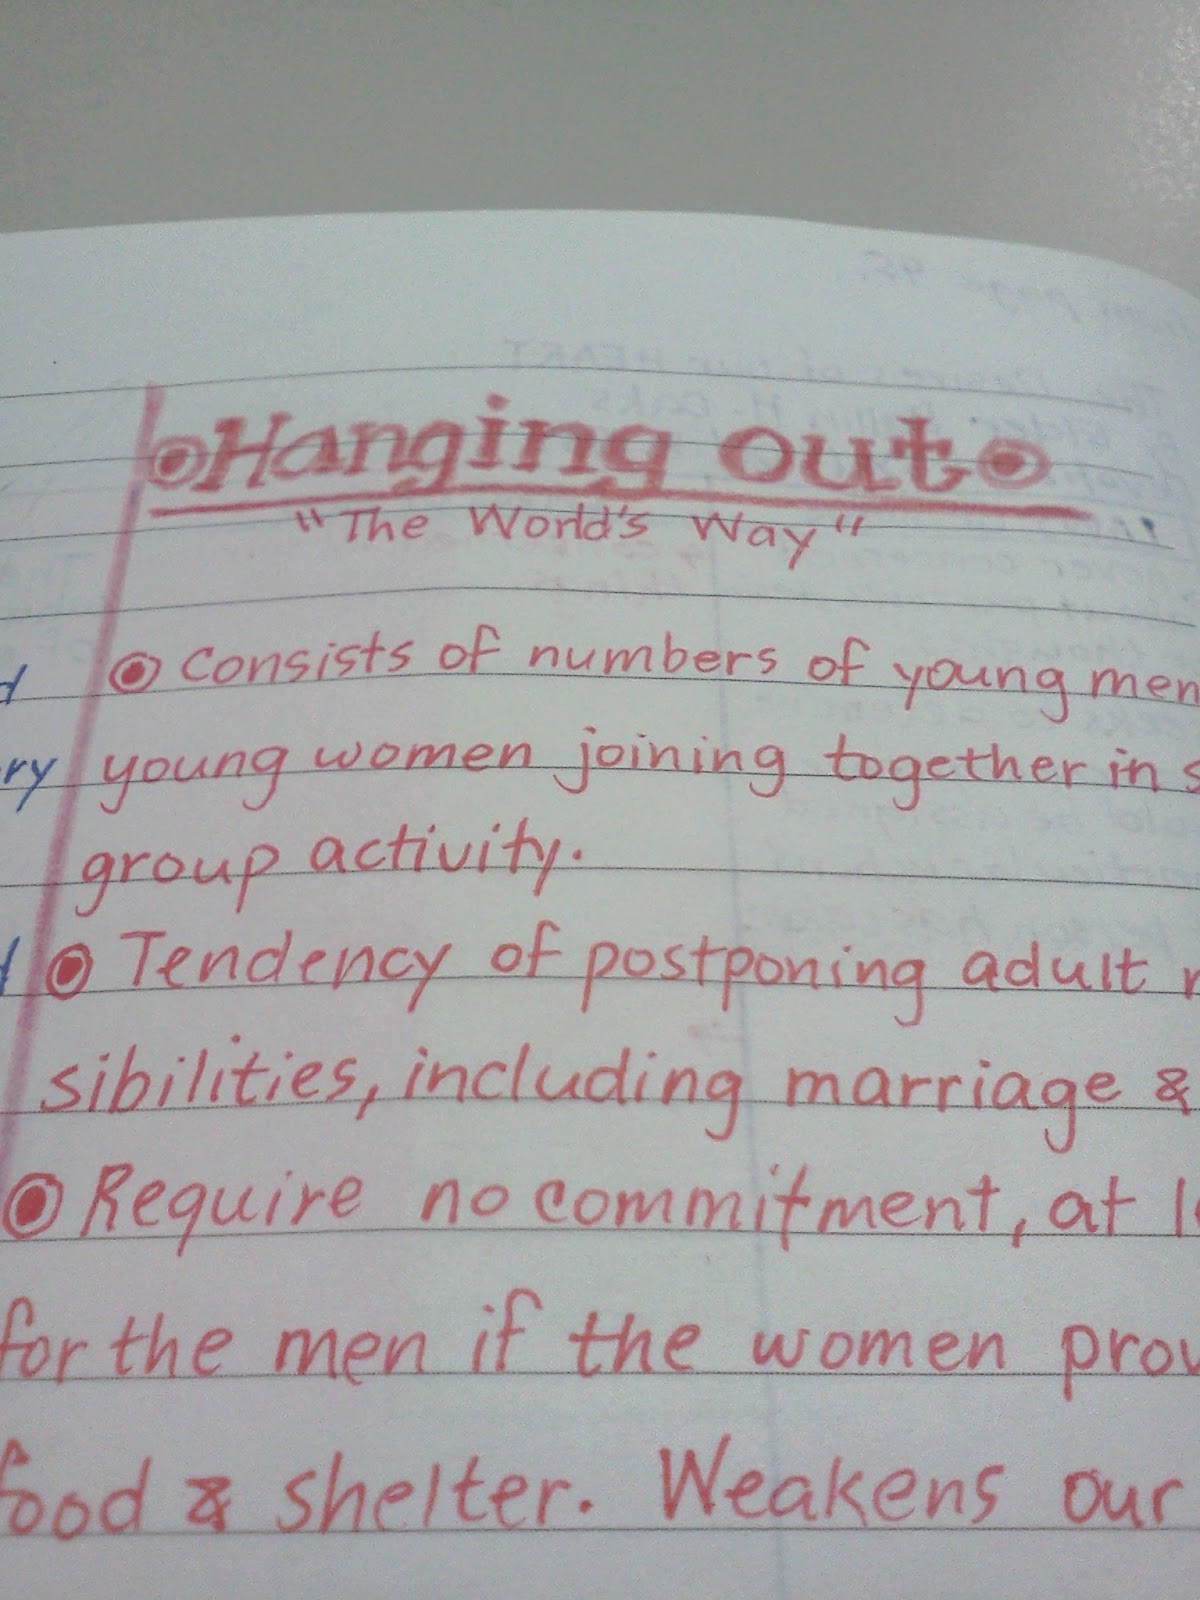 Hanging out
"The World's Way"
Consists of numbers of young men
young women joining together in s
group activity.
Tendency of postponing adult r
sibilities, including marriage &
Require no commitment, at l
for the men if the women prov
food & shelter. Weakens our